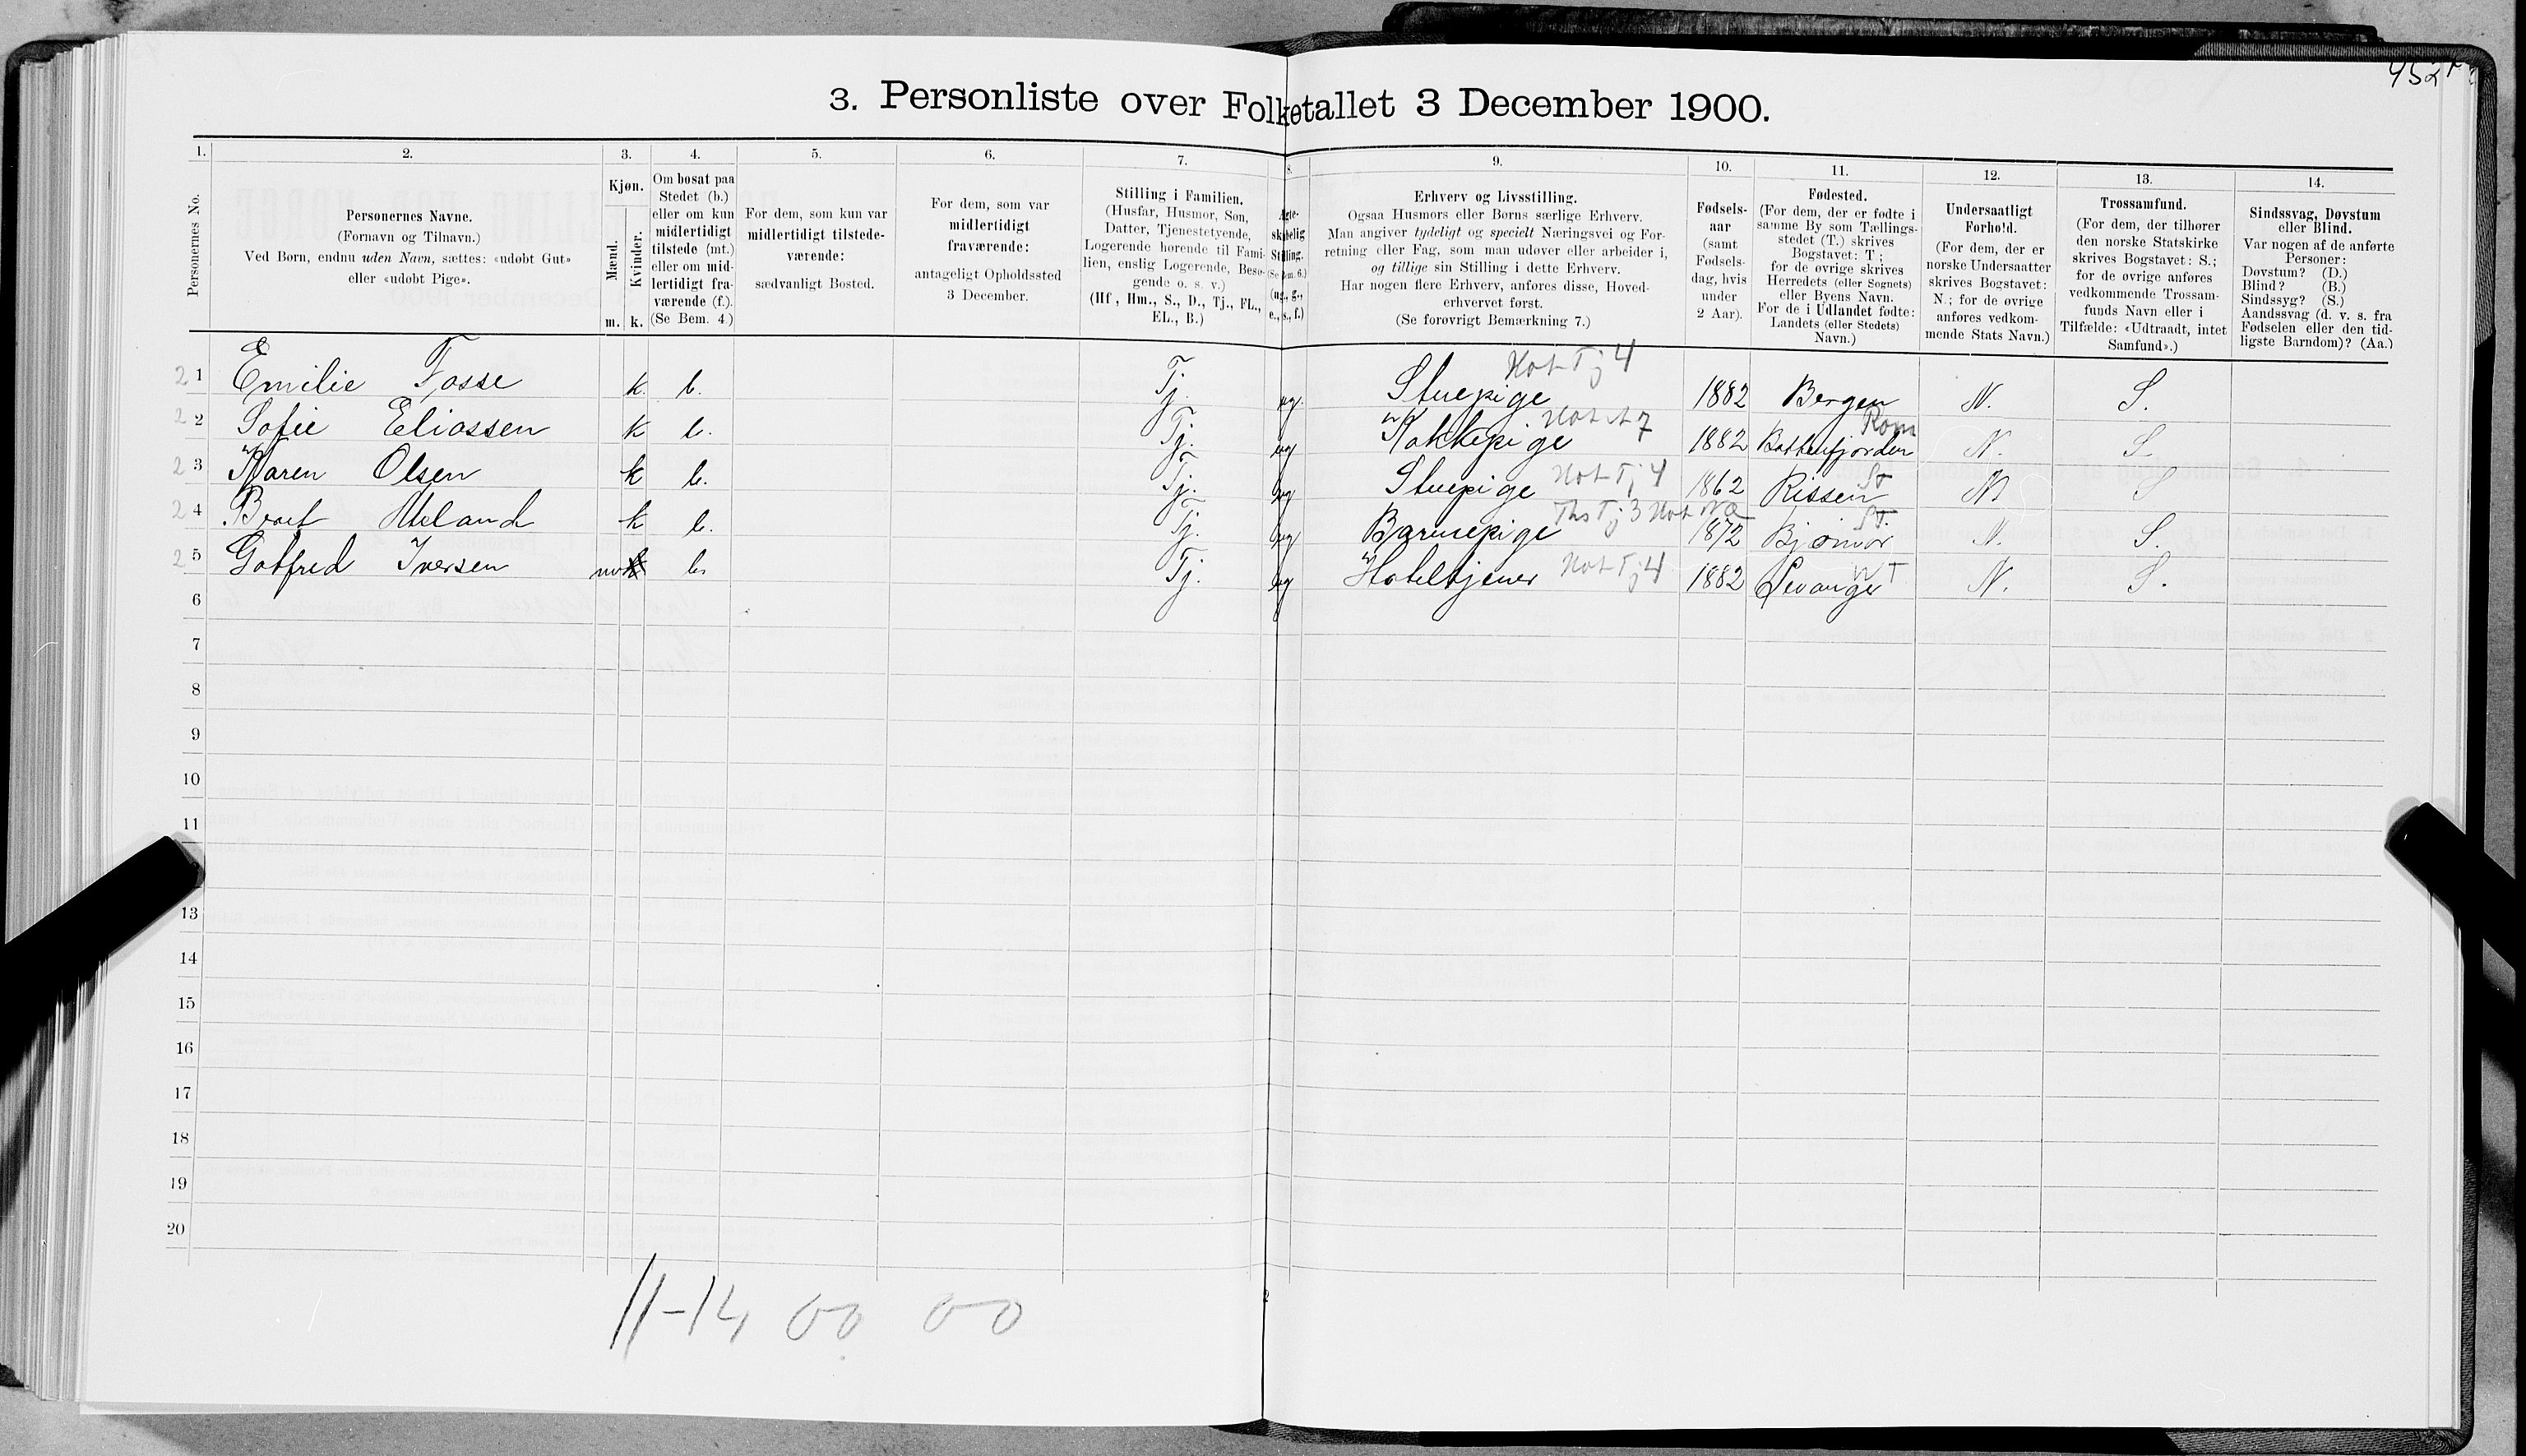 452
3. Personliste over Folketallet 3 December 1900.
1. 2. 3. 4. 5. 6. 7. 8. 9. 10. 11. 12. 13. 14.
Personernes No.
Personernes Navne.
(Fornavn og Tilnavn.)
Ved Børn, endnu uden Navn, sættes: «udøbt Gut»
eller «udøbt Pige».
Kjøn.
Mænd.
Kvinder.
m. k.
Om bosat paa
Stedet (b.)
eller om kun
midlertidigt
tilstede (mt.)
eller om mid-
lertidigt fra-
værende (f.).
(Se Bem. 4.)
For dem, som kun var
midlertidigt tilstede-
værende:
sædvanligt Bosted.
For dem, som var
midlertidigt
fraværende:
antageligt Opholdssted
3 December.
Stilling i Familien.
(Husfar, Husmor, Søn,
Datter, Tjenestetyende,
Logerende hørende til Fami-
lien, enslig Logerende, Besø-
gende o. s. v.)
(Hf., Hm., S., D., Tj., FL.,
EL., B.)
Ægte-
skabelig
Stilling.
(Se Bem. 6.)
(ug., g.,
e., s., f.)
Erhverv og Livsstilling.
Ogsaa Husmors eller Børns særlige Erhverv.
Man angiver tydeligt og specielt Næringsvei og For-
retning eller Fag, som man udøver eller arbeider i,
og tillige sin Stilling i dette Erhverv.
Har nogen flere Erhverv, anføres disse, Hoved-
erhvervet først.
(Se forøvrigt Bemærkning 7.)
Fødsels-
aar
(samt
Fødsels-
dag, hvis
under
2 Aar).
Fødested.
(For dem, der er fødte i
samme By som Tællings-
stedet (T.) skrives
Bogstavet: T;
for de øvrige skrives
Herredets (eller Sognets)
eller Byens Navn.
For de i Udlandet fødte:
Landets (eller Stedets)
Navn.)
Undersaatligt
Forhold.
(For dem, der er
norske Undersaatter
skrives Bogstavet:
N.; for de øvrige
anføres vedkom-
mende Stats Navn.)
Trossamfund.
(For dem, der tilhører
den norske Statskirke
skrives Bogstavet: S.;
for de øvrige anføres
vedkommende Trossam-
funds Navn eller i
Tilfælde: «Udtraadt, intet
Samfund».)
Sindssvag, Døvstum
eller Blind.
Var nogen af de anførte
Personer:
Døvstum? (D.)
Blind? (B.)
Sindssyg? (S.)
Aandssvag (d. v. s. fra
Fødselen eller den tid-
ligste Barndom)? (Aa.)
Hot Tj 4
2 1 Emilie Fosse k. b. Tj. ug. Stuepige 1882 Bergen N. S.
Rom
2 2 Sofie Eliassen k b. Tj. ug Kokkepige 7 1882 Battenfjorden N. S.
St
2 3 Karen Olsen k b. Tj. ug Stuepige Hot Tj 4 1862 Rissen N S
Tj 3 Hot St.
2 4 Uteland k b. Tj. ug Barnepige 1872 Bjørnør N. S.
N T
2 5 Gotfred Iversen m b. Tj. ug Hotelktjener Hot Tj 4 1882 Levanger N. S.
6
7
8
9
10
11
13
14
15
16
17
18
19
20
11-14 00 00
2